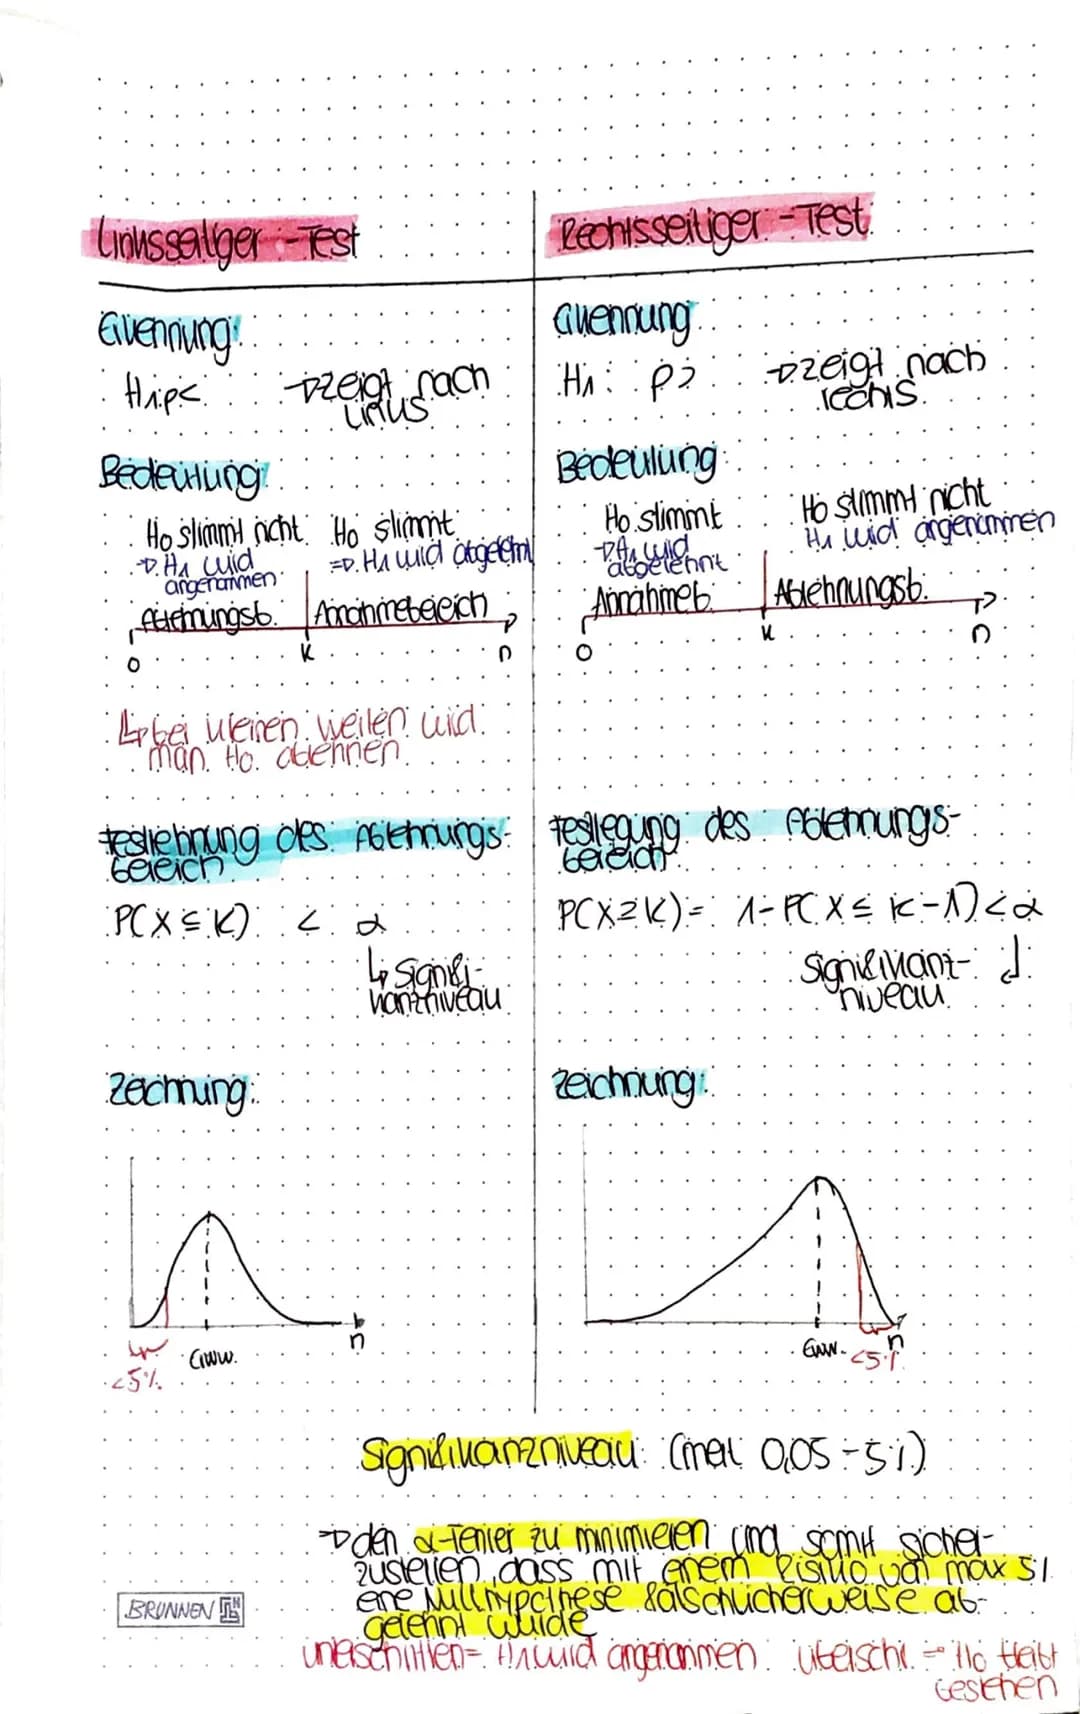 Linksseitiger-Test
Erkennung:
H₁: p<
→ zeigt nach
links
Bedeutung:
H₀ stimmt nicht
→ H₁ wird
angenommen
H₀ stimmt
⇒ H₁ wird abgelehnt
Ablehnungsb. | Annahmebereich
0 K n
↳ bei kleinen Werten wird
man H₀ ablehnen.
Festlehnung des Ablehnungs-
bereich
P(X ≤ K) < α
↳ Signifi-
kanzniveau
Zeichnung:
n
Erww.
<5%
Rechtsseitiger-Test
Erkennung
H₁: p>
→ zeigt nach
rechts.
Bedeutung
H₀ stimmt
→ H₁ wird
abgelehnt
H₀ stimmt nicht
H₁ wird angenommen
Annahmeb. | Ablehnungsb.
0 K n
Festlegung des Ablehnungs-
bereich
P(X ≥ K) = 1 - P(X ≤ K-1) < α
Signifikant-
niveau
Zeichnung:
n
Erww.
<5%
Signifikanzniveau: (meist 0,05 - 5%)
→ den α-Fehler zu minimieren und somit sicher-
zustellen, dass mit einem Risiko von max 5%
eine Nullhypothese fälschlicherweise ab-
gelehnt wurde
unterschritten = H₁ wird angenommen überschr. = H₀ bleibt
bestehen
BRUNNEN